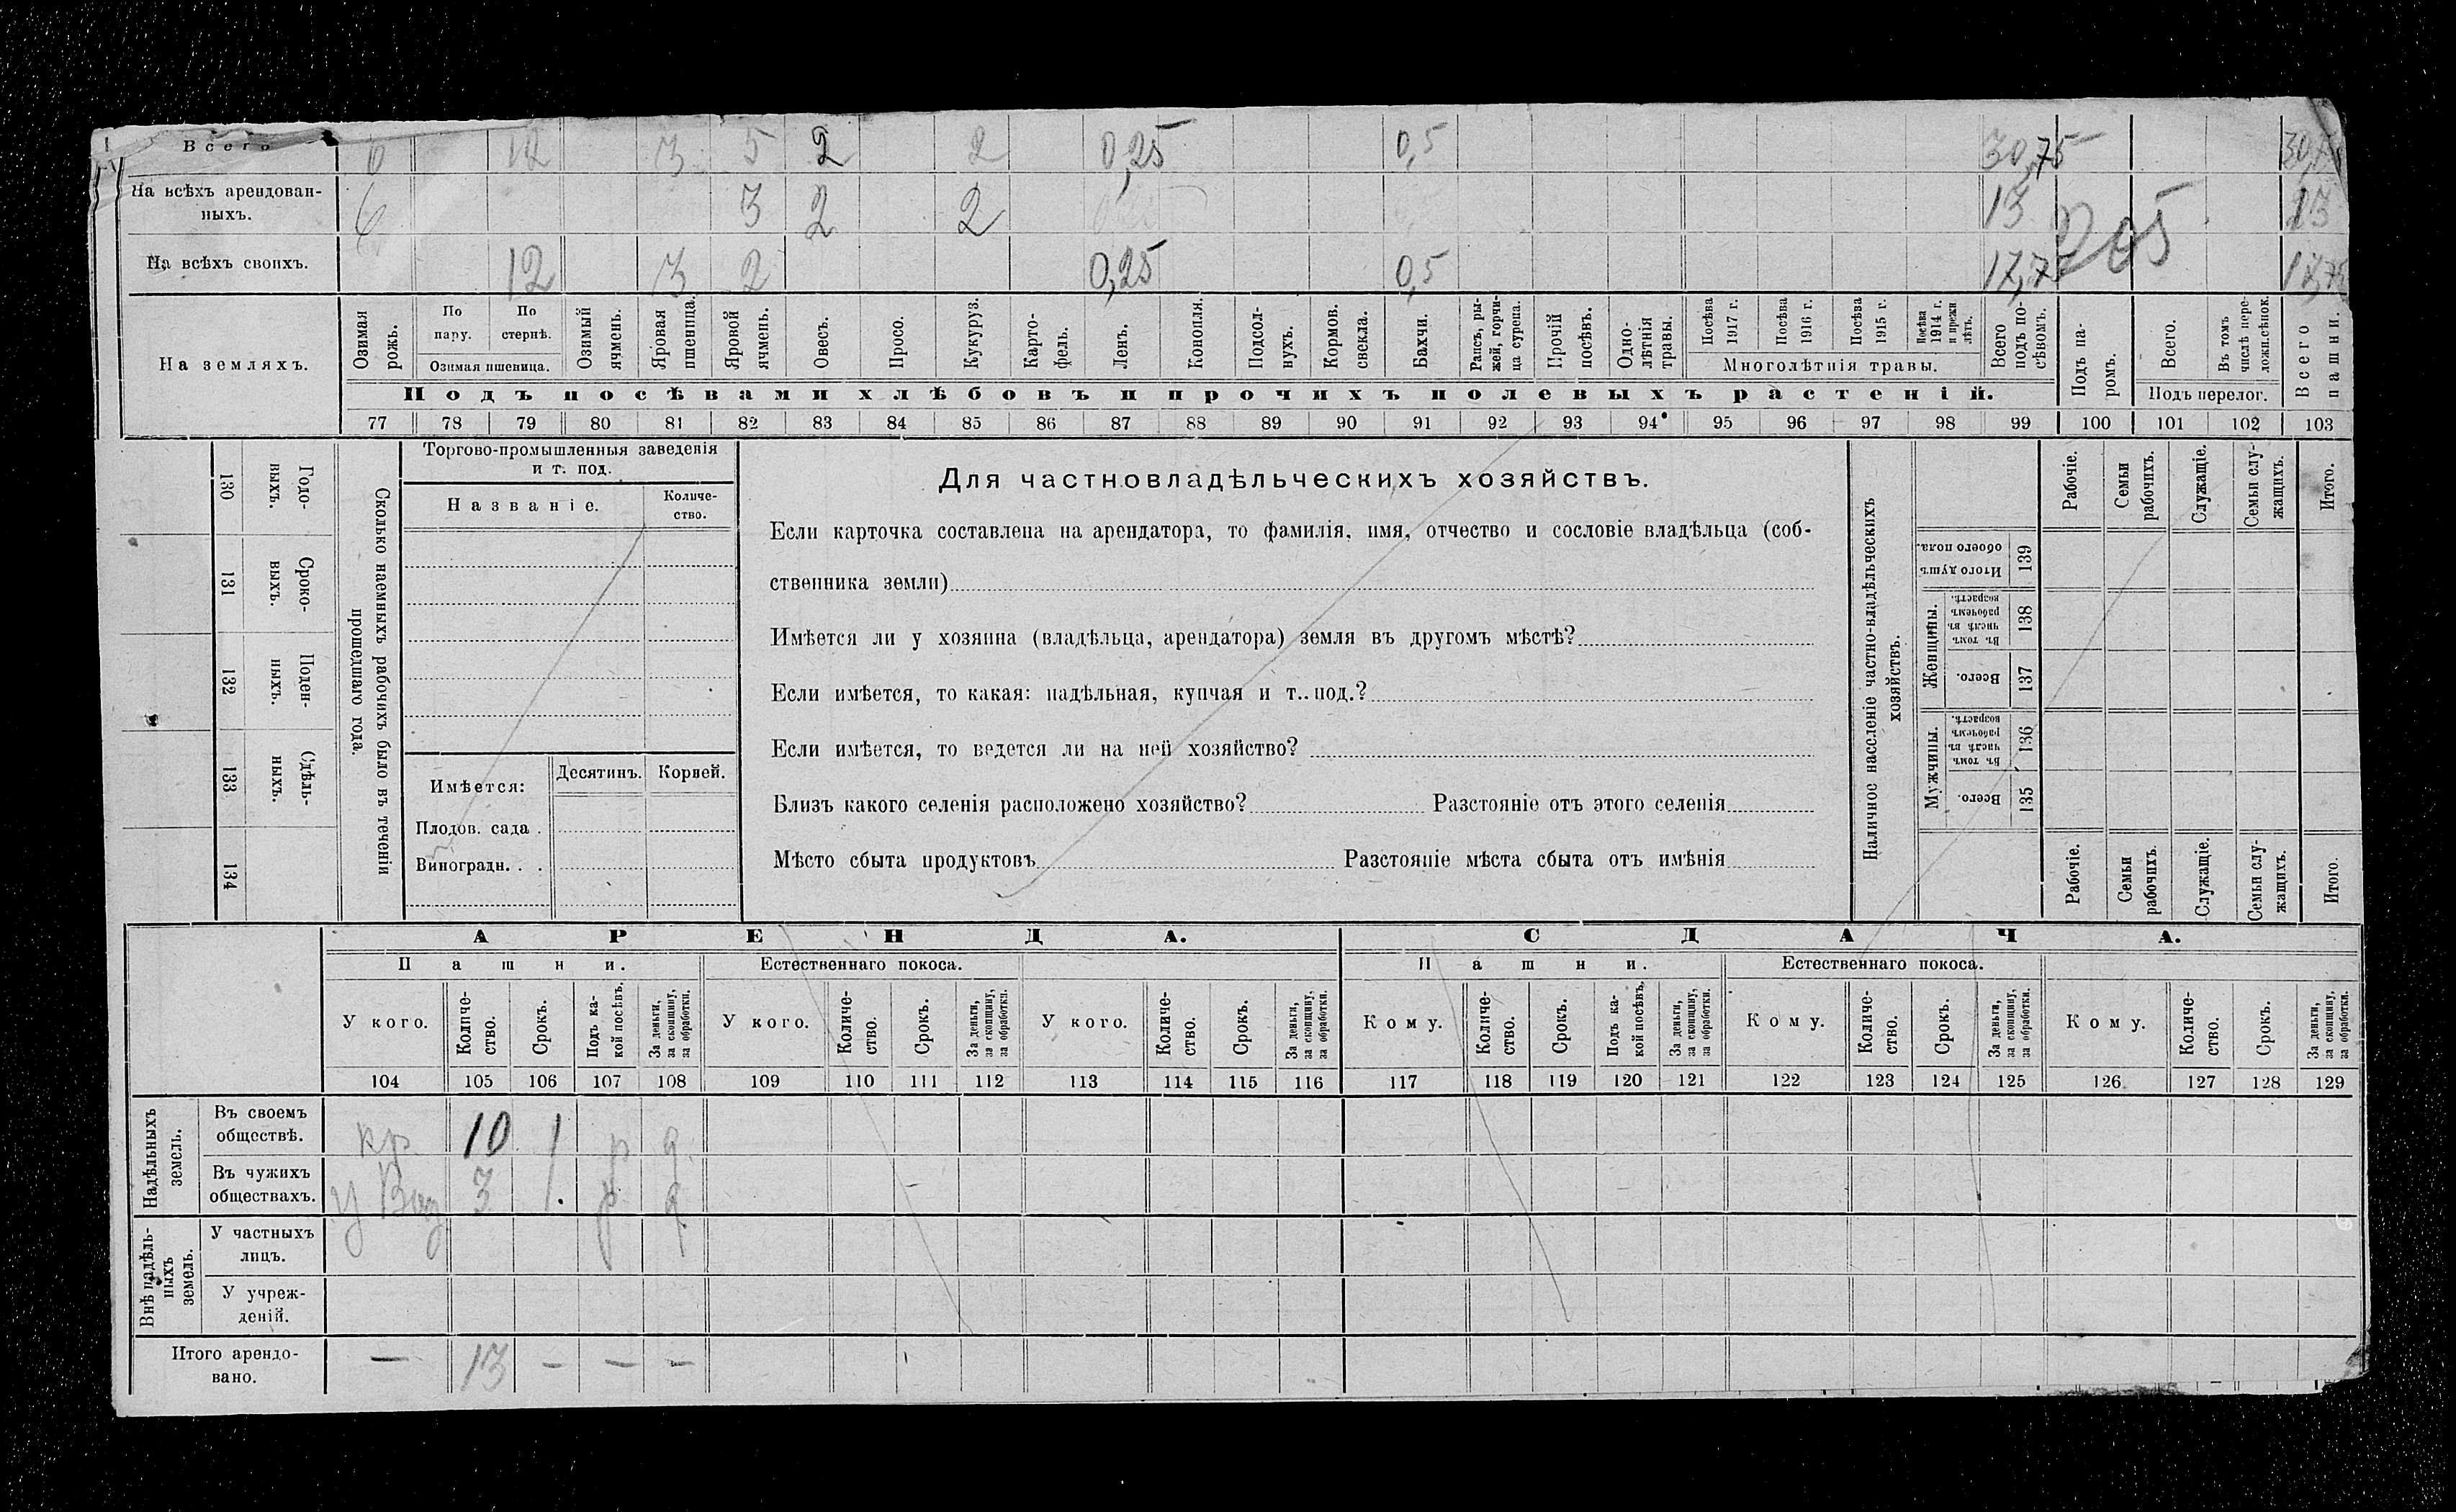 Всего 6 12 3 5 2 2 0,25 0,5 30,75
На всѣхъ арендован-
ныхъ. 6 3 2 2 13 13
На всѣхъ своихъ. 12 3 2 0,25 0,5 17,75 17,75
На земляхъ.
Озимая рожь.
По пару.
По стернѣ.
Озимая пшеница.
Озимый ячмень.
Яровая пшеница.
Яровой ячмень.
Овесъ.
Просо.
Кукуруз.
Карто-
фель.
Ленъ.
Конопля.
Подсол-
нухъ.
Кормов.
свекла.
Бахчи.
Рапсъ, ры-
жей, горчи-
ца сурепа.
Прочій посѣвъ.
Одно-
лѣтнія травы.
Посѣва 1917 г.
Посѣва 1916 г.
Посѣва 1915 г.
Посѣва 1914 г. и прежн лѣтъ.
Многолѣтнія травы.
Всего подъ по-
сѣвомъ.
Подъ па-
ромъ.
Всего.
Въ томъ числѣ пере-
ложн.сѣнок.
Подъ перелог.
Всего пашни.
Подъ посѣвами хлѣбовъ и прочихъ полевыхъ растеній.
77 78 79 80 81 82 83 84 85 86 87 88 89 90 91 92 93 94 95 96 97 98 99 100 101 102 103
130 Годо-
выхъ.
131 Сроко-
выхъ.
132 Поден-
ныхъ.
133 Сдѣль-
ныхъ.
134
Сколько наемныхъ рабочихъ было въ теченіи
прошедшаго года.
Торгово-промышленныя заведенія
и т. под.
Названіе.
Количе-
ство.
Имѣется:
Десятинъ. Корней.
Плодов. сада .
Виноградн. . .
Для частновладѣльческихъ хозяйствъ.
Если карточка составлена на арендатора, то фамилія, имя, отчество и сословіе владѣльца (соб-
ственника земли)
Имѣется ли у хозяина (владѣльца, арендатора) земля въ другомъ мѣстѣ?
Если имѣется, то какая: надѣльная, купчая и т. под.?
Если имѣется, то ведется ли на ней хозяйство?
Близъ какого селенія расположено хозяйство? Разстояніе отъ этого селенія
Мѣсто сбыта продуктовъ Разстояніе мѣста сбыта отъ имѣнія
Наличное населеніе частно-владѣльческихъ
хозяйствъ.
Рабочіе.
Семьи рабочихъ.
Служащіе.
Семьи слу-
жащихъ.
Итого.
Итого душъ обоего пола. 139
Женщины.
Въ томъ числѣ въ рабочемъ возрастѣ. 138
Всего. 137
Мужчины.
Въ томъ числѣ въ рабочемъ возрастѣ. 136
Всего. 135
Рабочіе.
Семьи рабочихъ.
Служащіе.
Семьи слу-
жащихъ.
Итого.
АРЕНДА. СДАЧА.
Пашни. Естественнаго покоса. Пашни. Естественнаго покоса.
У кого.
Количе-
ство.
Срокъ.
Подъ ка-
кой посѣвъ.
За деньги, за скопщину, за обработки.
У кого.
Количе-
ство.
Срокъ.
За деньги, за скопщину, за обработки.
У кого.
Количе-
ство.
Срокъ.
За деньги, за скопщину, за обработки.
Кому.
Количе-
ство.
Срокъ.
Подъ ка-
кой посѣвъ.
За деньги, за скопщину, за обработки.
Кому.
Количе-
ство.
Срокъ.
За деньги, за скопщину, за обработки.
Кому.
Количе-
ство.
Срокъ.
За деньги, за скопщину, за обработки.
104 105 106 107 108 109 110 111 112 113 114 115 116 117 118 119 120 121 122 123 124 125 126 127 128 129
Надѣльныхъ земель.
Въ своемъ
обществѣ. кр. 10 1 р д.
Въ чужихъ
обществахъ. У 3 1. р д
Внѣ надѣль-
ныхъ земель.
У частныхъ
лицъ.
У учреж-
деній.
Итого арендо-
вано. — 13 — — —